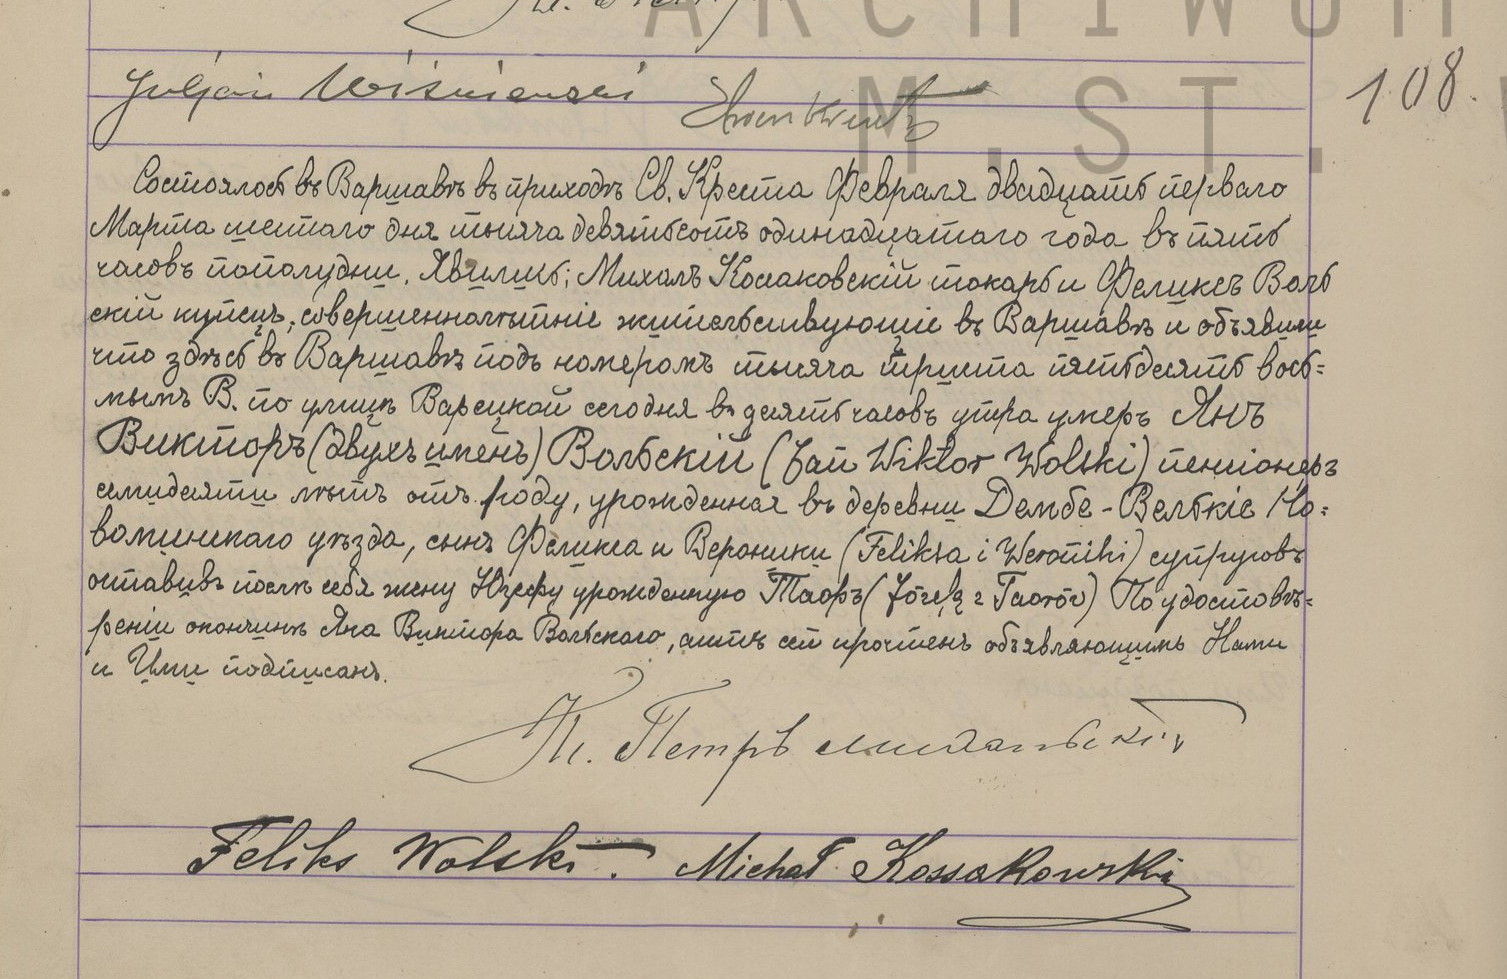 ARCHIWUM
M. ST.
Juljan Wiśniewski
108.
Состоялось въ Варшавѣ въ приходѣ Св. Креста Февраля двадцать перваго
Марта шестаго дня тысяча девятьсотъ одинадцатаго года въ пять
часовъ пополудни. Явились: Михалъ Косаковскій токарь и Феликсъ Воль
скій купецъ, совершеннолѣтніе жительствующіе въ Варшавѣ и объявили
что здѣсь въ Варшавѣ подъ номеромъ тысяча триста пятьдесятъ вось=
мымъ В. по улицѣ Варецкой сегодня въ десять часовъ утра умеръ Янъ
Викторъ (двухъ именъ) Вольскій (Jan Wiktor Wolski) пенсіонеръ
семидесяти лѣтъ отъ роду, урожденная въ деревни Дембе-Велькіе Но=
воминскаго уѣзда, сынъ Феликса и Вероники (Feliksa i Weroniki) супруговъ
оставивъ послѣ себя жену Юзефу урожденную Таоръ (Józefę z Taorów) По удостовѣ=
реніи кончины Яна Виктора Вольскаго, актъ сей прочтенъ объявляющимъ Нами
и Ими подписанъ.
Кс. Петръ
Feliks Wolski. Michał Kossakowski